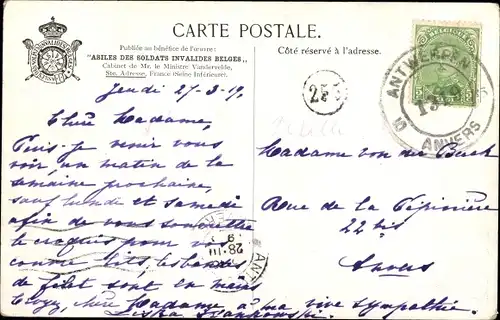 CARTE POSTALE.
Publiée au bénéfice de l'œuvre:
"ASILES DES SOLDATS INVALIDES BELGES"
Cabinet de Mr. le Ministre Vandervelde,
Ste. Adresse, France (Seine Inférieure).
Côté réservé à l'adresse.
ANTWERPEN
13-19
5 ANVERS
25
Jeudi 27-3-19.
Chère Madame,
Puis-je venir vous
voir, un matin de la
semaine prochaine,
sauf lundi et samedi
afin de vous soumettre
le croquis pour vos
contre les bandes
de filet sont en mains
Croyez, chère Madame à ma vive sympathie.
28 III
Madame von der Beck
Rue de la Pépinière
22 bis
Anvers